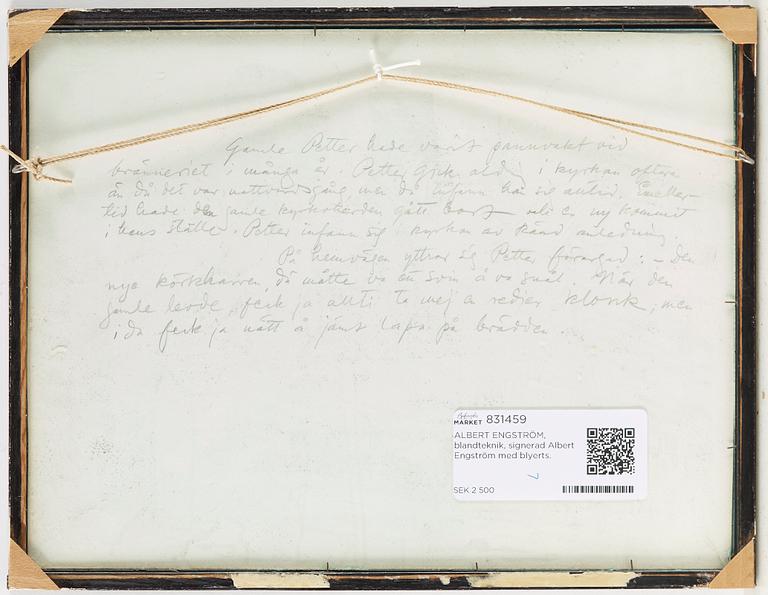 Gamle Petter hade varit pannvakt vid
bränneriet i många år. Petter gick aldrig i kyrkan oftare
än då det var nattvardsgång men då infann han sig alltid. Emeller-
tid hade den gamle kyrkoherden gått bort och en ny kommit
i hans ställe. Petter infann sig i kyrkan av känd anledning.
På hemvägen yttrar sig Petter förargad: – Den
nye körkharren, då måtte va en svin å va snål. När den
gamle levde, feck ja allti ta mej en redier klonk, men
i da feck ja nått å jämt lapa på brädden.
Bukowskis
MARKET 831459
ALBERT ENGSTRÖM,
blandteknik, signerad Albert
Engström med blyerts.
SEK 2 500